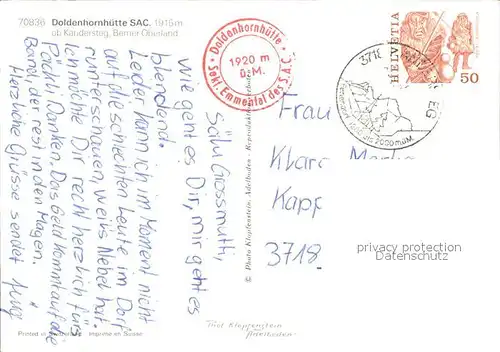 70836 Doldenhornhütte SAC. 1915m
ob Kandersteg, Berner Oberland
Doldenhornhütte
1920 m
ü.M.
Sekt. Emmental des S.A.C.
HELVETIA
50
3718
EG
2000 m ü.M.
Sälu Grossmutti,
wie geht es Dir, mir geht es
blendend.
Leider kann ich im Moment nicht
auf die schlechten Leute im Dorf
runterschauen, weils Nebel hat.
Ich möchte Dir recht herzlich fürs
Päckli Danken. Das Geld kommt auf die
Bank der rest in den Magen.
Herzliche Grüsse sendet
© Photo Klopfenstein, Adelboden - Reproduktion
Frau
Klara
Kapp
3718
privacy protection
Datenschutz
Printed in Switzerland Imprimé en Suisse
Phot Klopfenstein
Adelboden